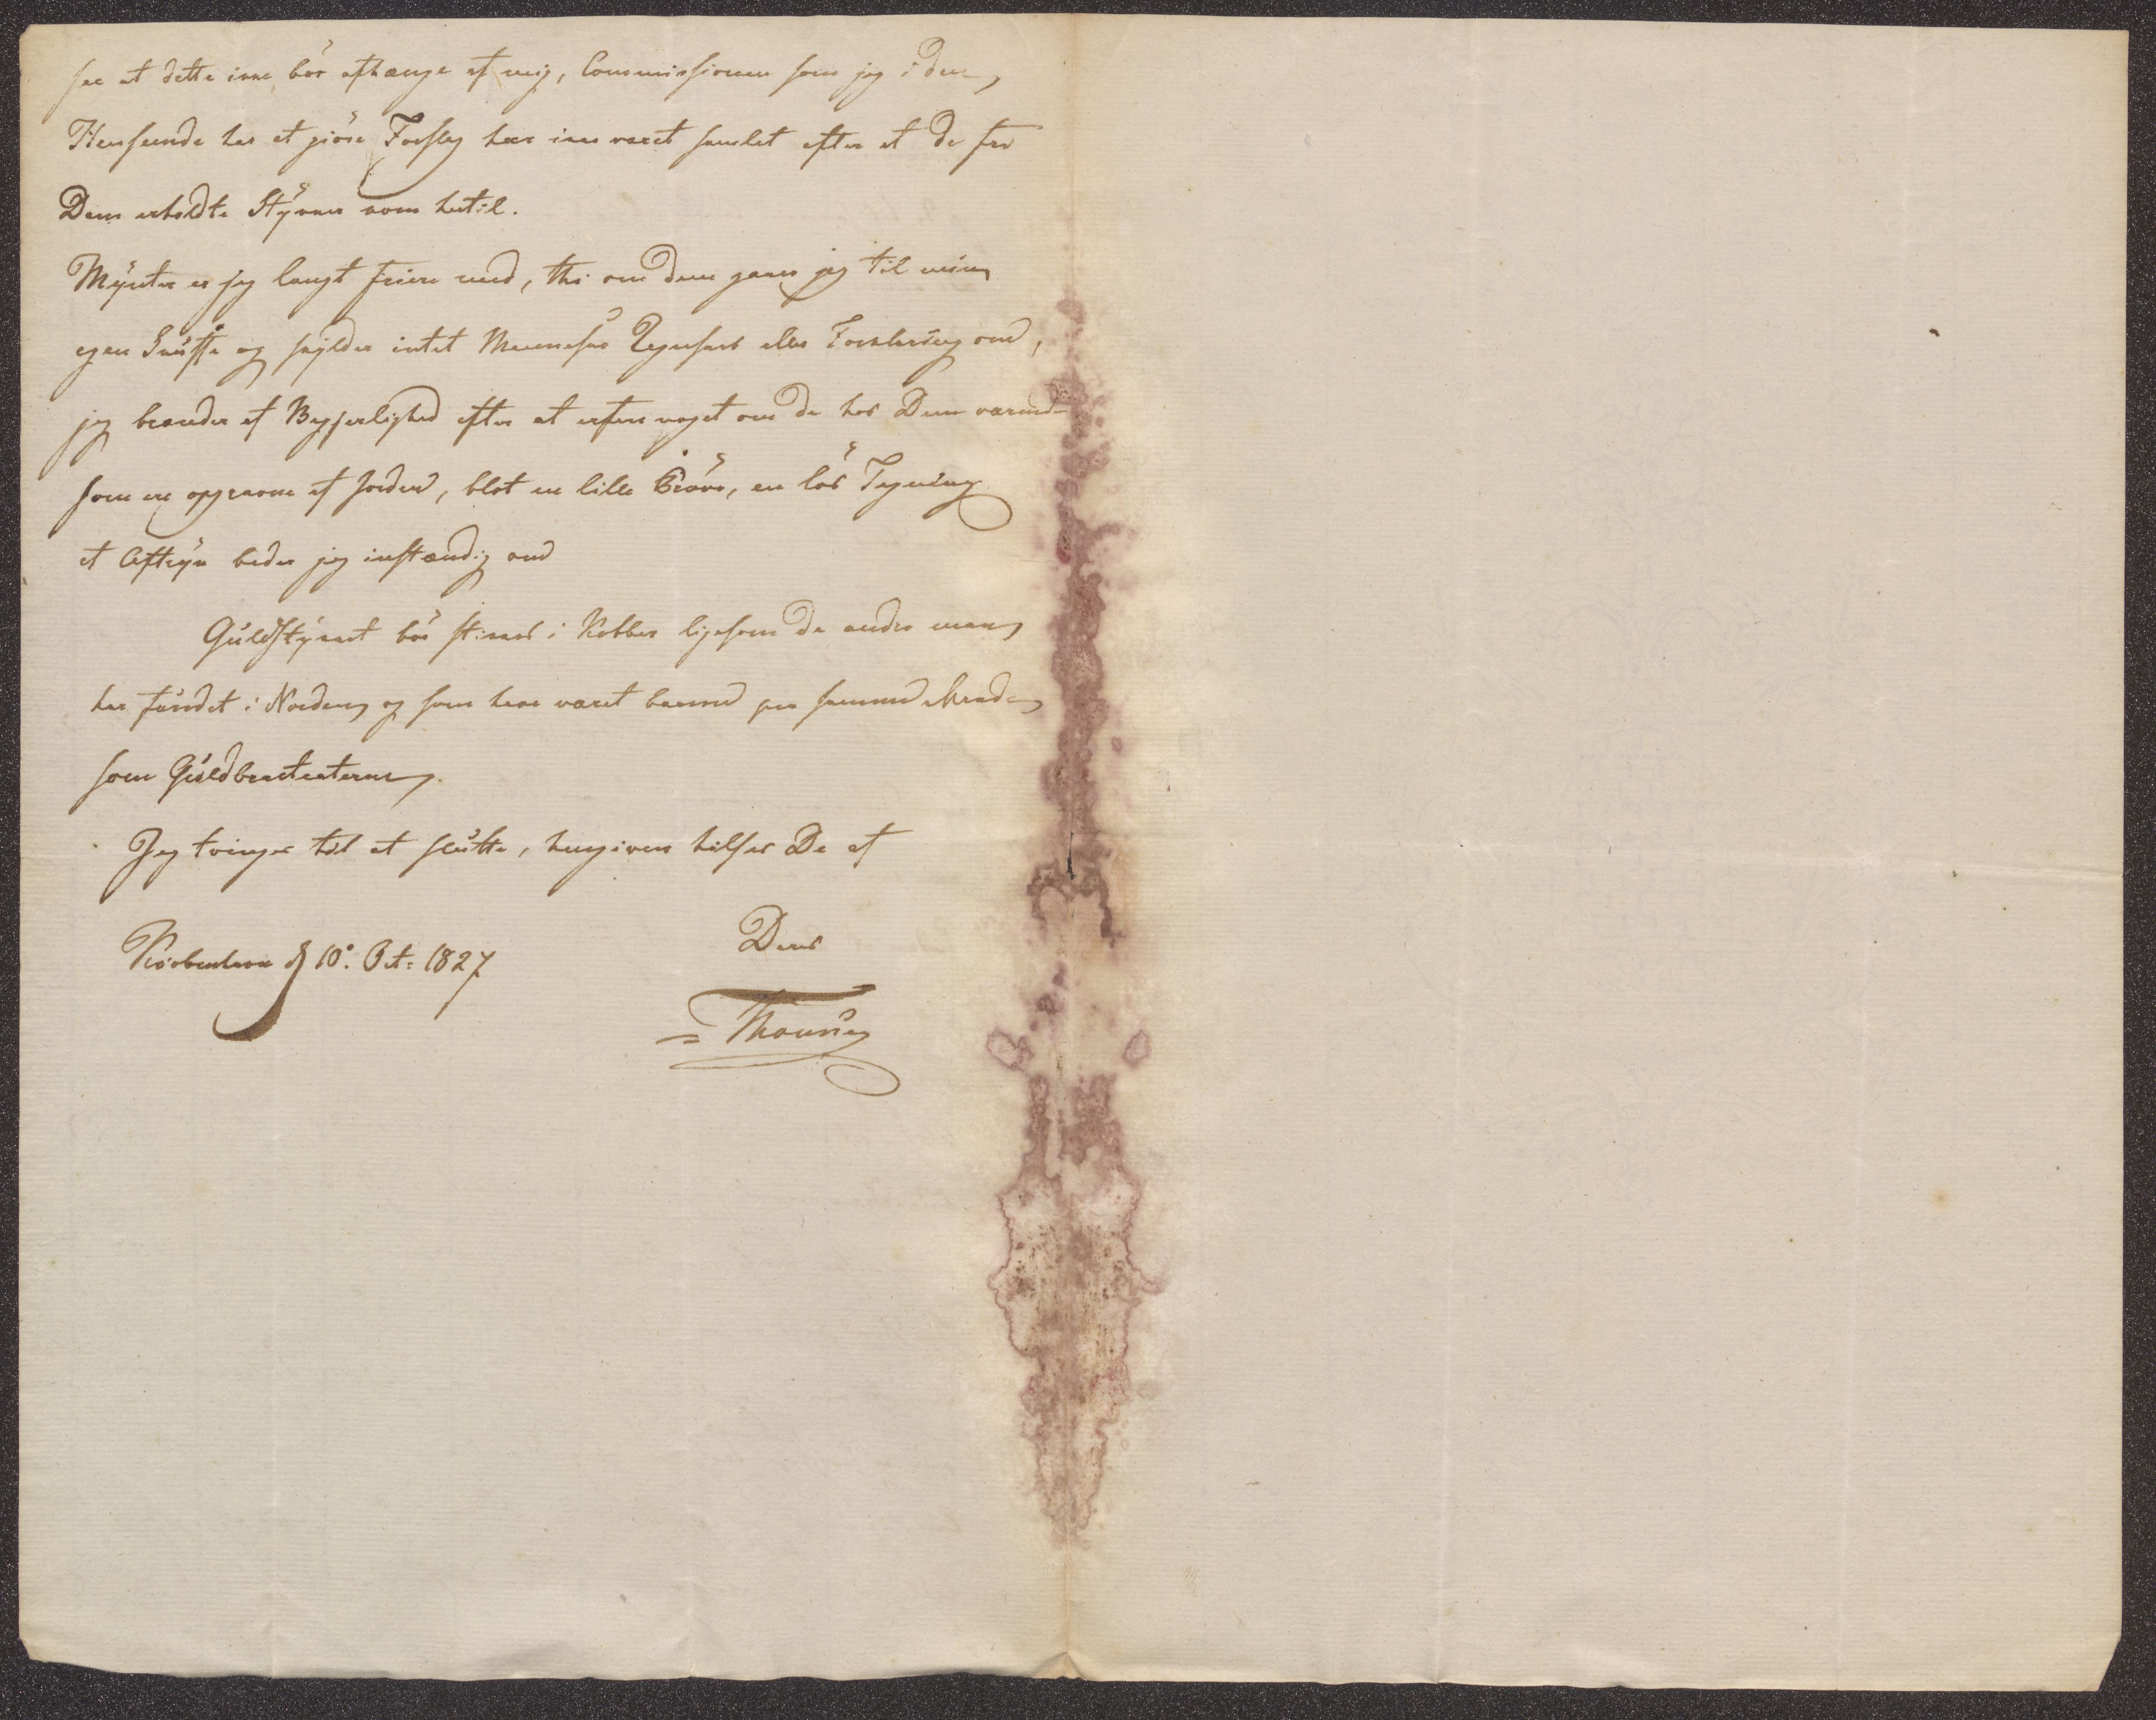 see at dette ikke bör afhænge af mig, Commissionen som jeg i den
Henseende har at giöre Forslag har ikke været samlet efter at de fra
Dem erholdte Stykker kom hertil.
Mynter er jeg langt friere med, thi om dem gaaer jeg til min
egen Skuffe og skylder intet Menneske Regnskab eller Forklaring om,
jeg brænder af Begjerlighed efter at erfare noget om de hos Dem værende
som ere opgravne af Jorden, blot en lille Pröve, en lös Tegning
et Aftryk beder jeg instændig om
Guldstykket bör stikkes i Kobber ligesom de andre man
har fundet i Norden og som have været baarne paa samme Maade
som Guldbracteaterne.
Jeg tvinges til at slutte, hengiven hilses De af
Deres
Kiöbenhavn d 10. Oct: 1827
Thomsen